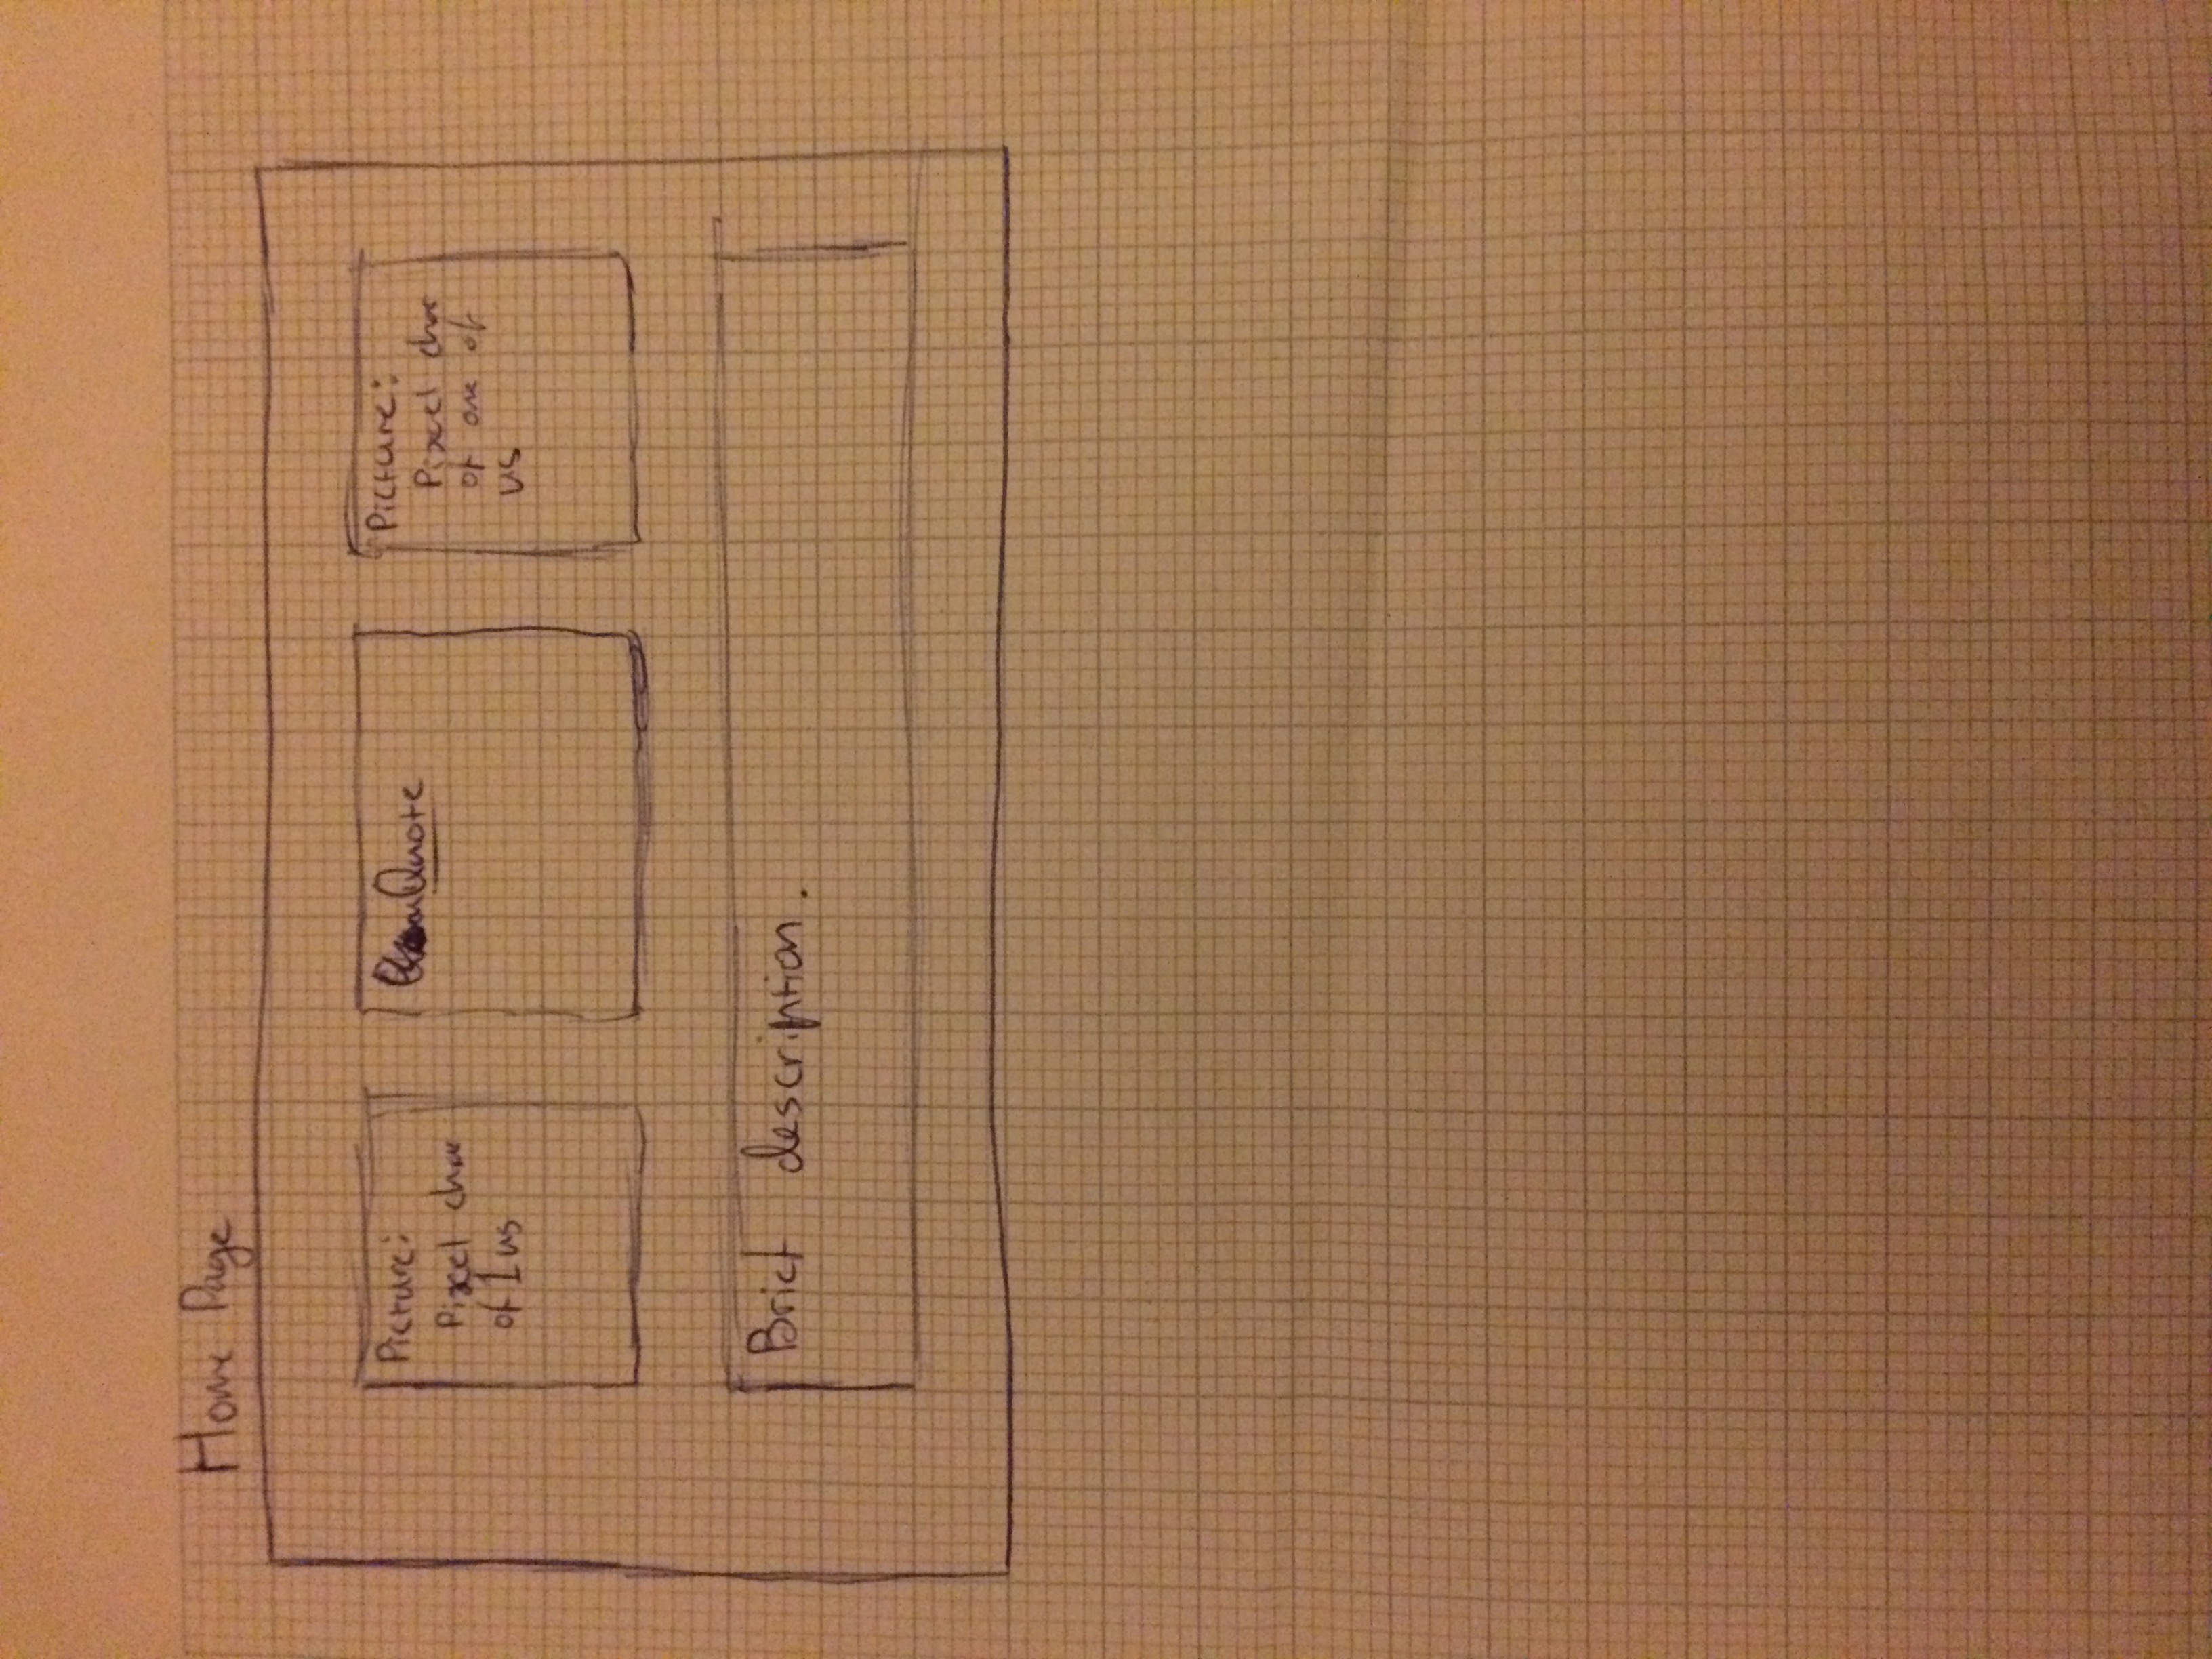 Home Page
Picture:
Pixel char
of 1 us
Quote
Picture:
Pixel char
of one of
us
Brief description.